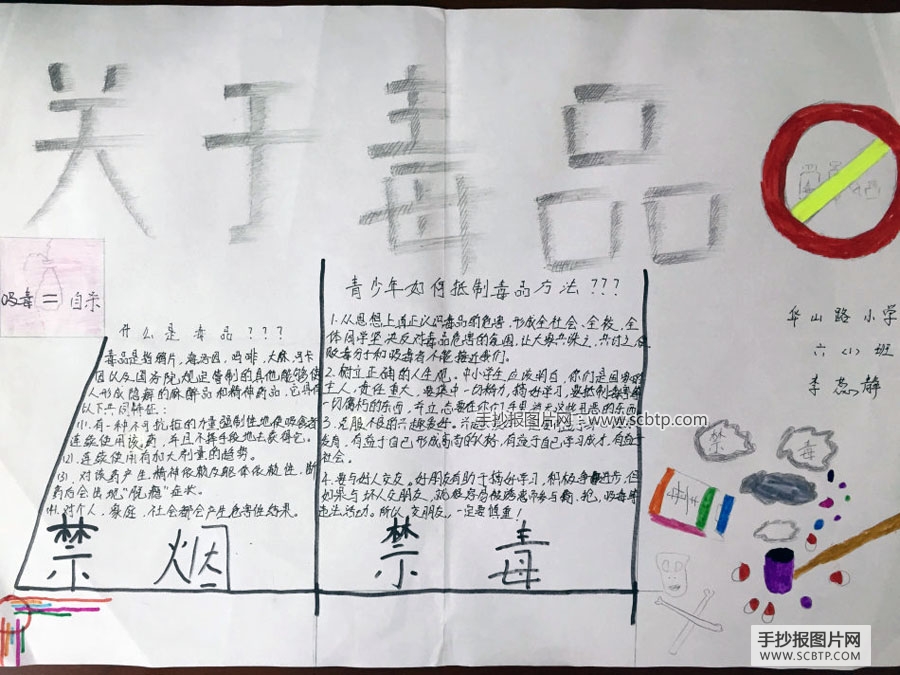 关于毒品
吸毒=自杀
什么是毒品???
毒品是指鸦片，海洛因，吗啡，大麻，可卡
因以及国务院规定管制的其他能够使
人形成隐瘾的麻醉品和精神药品，它具有
以下共同特征：
(1).有一种不可抗拒的力量强制性地使吸食者
连续使用该药，并且不择手段地去获得它。
(2).连续使用有加大剂量的趋势。
(3).对该药产生精神依赖及躯体依赖性，断
药后会出现“脱瘾”症状。
(4).对个人，家庭，社会都会产生危害性结果。
禁烟
青少年如何抵制毒品方法???
1.从思想上真正认识毒品的危害，形成全社会、全校、全
体同学坚决反对毒品危害的氛围，让大家共
贩毒分子和吸毒者不能接近我们。
2.树立正确的人生观。中小学生应该明白，你们是国家的
主人，责任重大，要集中一切精力，搞好学习，要抵制
一切腐朽的东西，并立志要在你们手里
3.克服不良的兴趣爱好。
发育，有益于自己形成高尚的人格，有益于自己学习成才，有益于
社会。
4.要与好人交友。好朋友有助于搞好学习，积极争取进步，但
如果与坏人交朋友，就很容易被诱惑
违法活动。所以，交朋友，一定要慎重！
禁毒
华山路小学
六〈1〉班
李 静
禁
毒
手抄报图片网
www.scbtp.com
手抄报图片网
WWW.SCBTP.COM